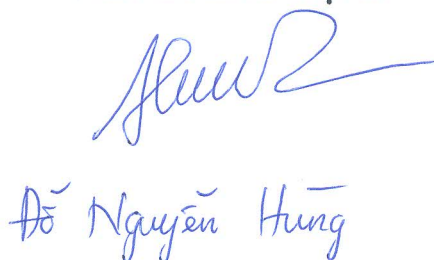 Đỗ Nguyễn Hưng